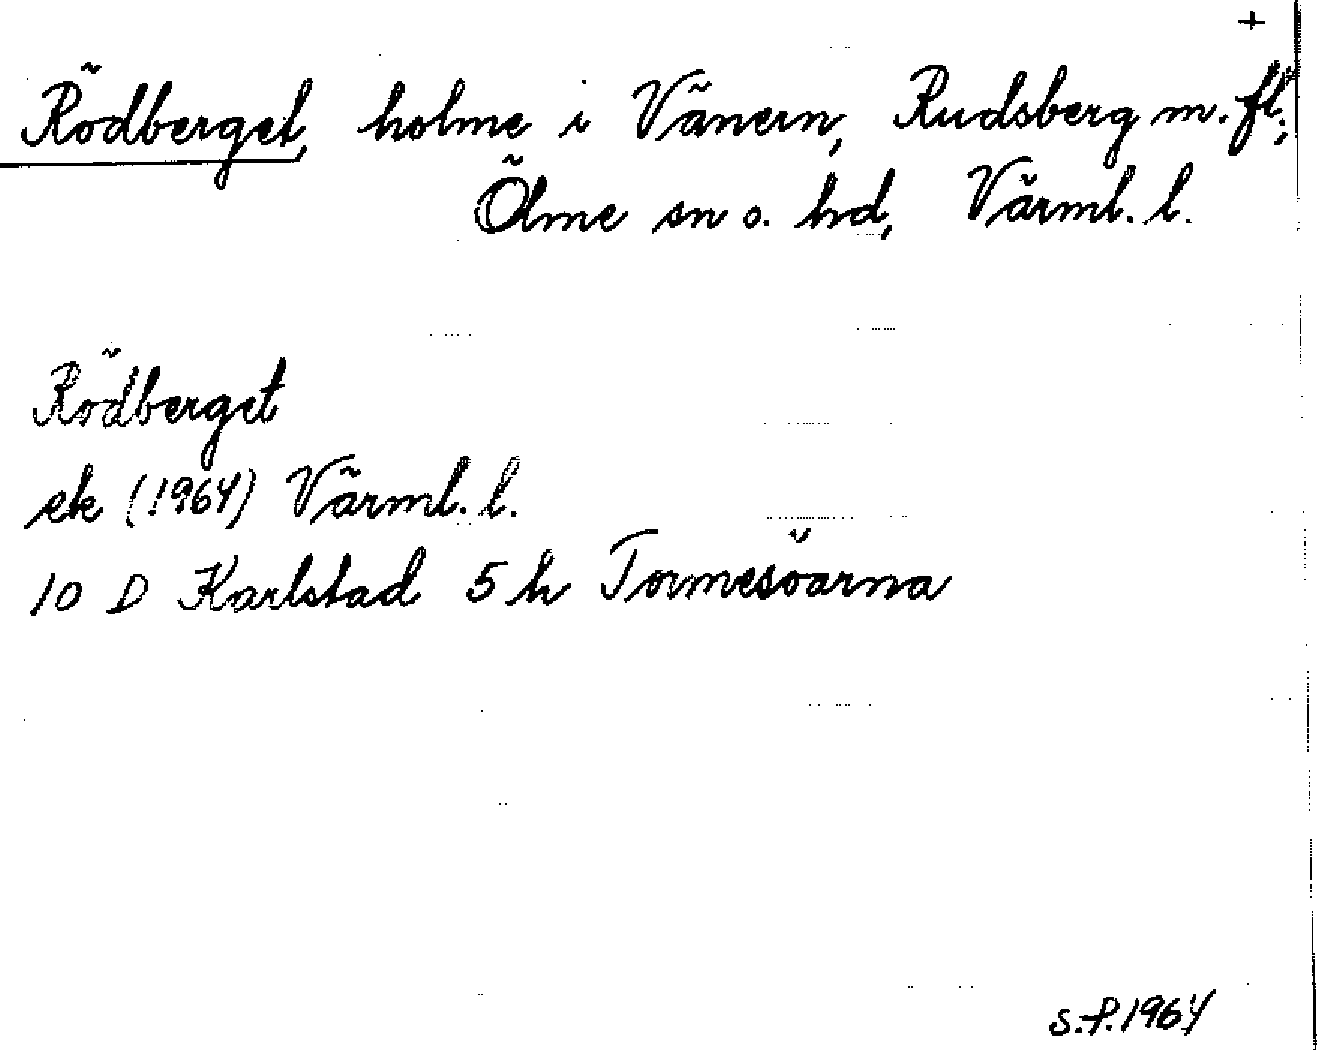 +
Rödberget, holme i Vänern, Rudsberg m. fl.,
Ölme sn o. hd, Värml. l.
Rödberget
ek (1964) Värml. l.
10 D Karlstad 5 h Tormesöarna
S.P. 1964